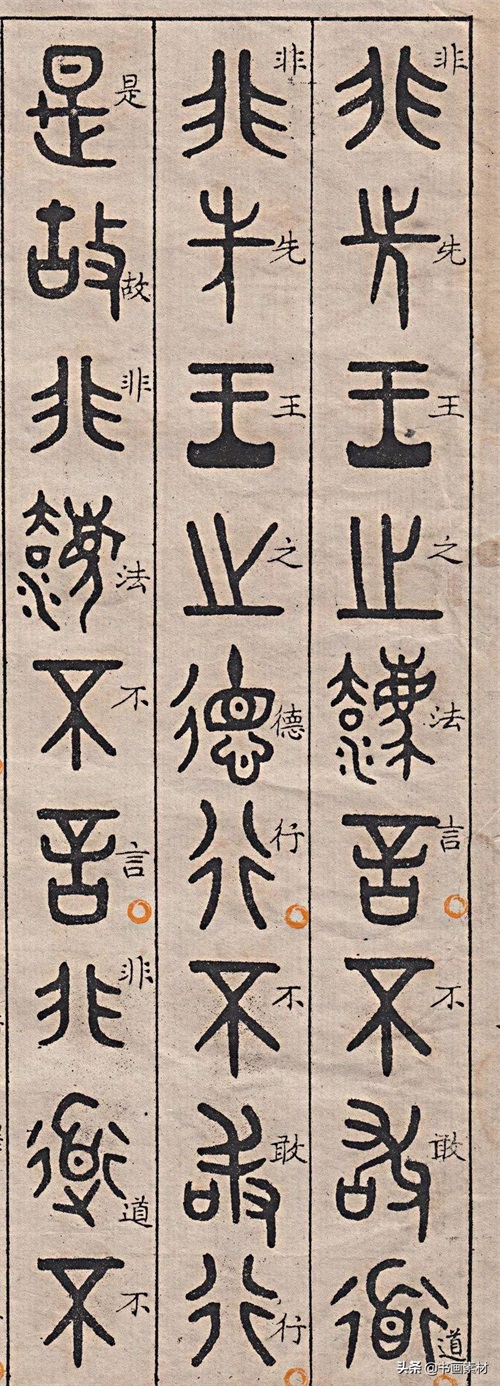 非先王之法言不敢道
非先王之德行不敢行
是故非法不言非道不
头条 @书画素材